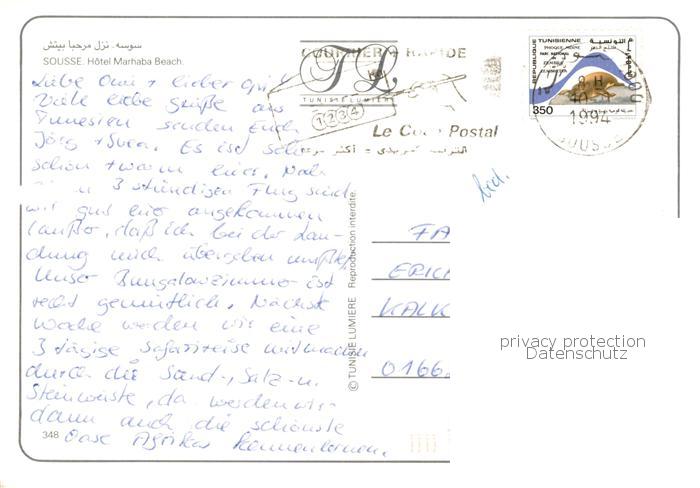 سوسه. نزل مرحبا بيتش
SOUSSE. Hôtel Marhaba Beach.
Liebe Omi + lieber Opi!
Viele liebe Grüße aus
Tunesien senden Euch
Jörg + Svea. Es ist sehr
schön + warm hier. Nach
3 stündigen Flug sind
wir gut hier angekommen
(außer, daß ich bei der Lan-
dung mich übergeben mußte)
Unser Bungalowzimmer ist
recht gemütlich. Nächste
Woche werden wir eine
3 tägige Safarireise mitmachen
durch die Sand-, Salz- u.
Steinwüste, da werden wir
dann auch die schönste
Oase Afrikas kennenlernen.
348
TL
TUNISIE LUMIERE
1234
RAPIDE
Le Code Postal
الترتيب البريدي = أكثر سرعة
REPUBLIQUE TUNISIENNE
PHOQUE MOINE
PARC NATIONAL
ZEMBRA
ZEMBRETTA
350
8 H
1994
SOUSSE
© TUNISIE LUMIERE Reproduction interdite.
FA
ERICH
KALK
0166
privacy protection
Datenschutz